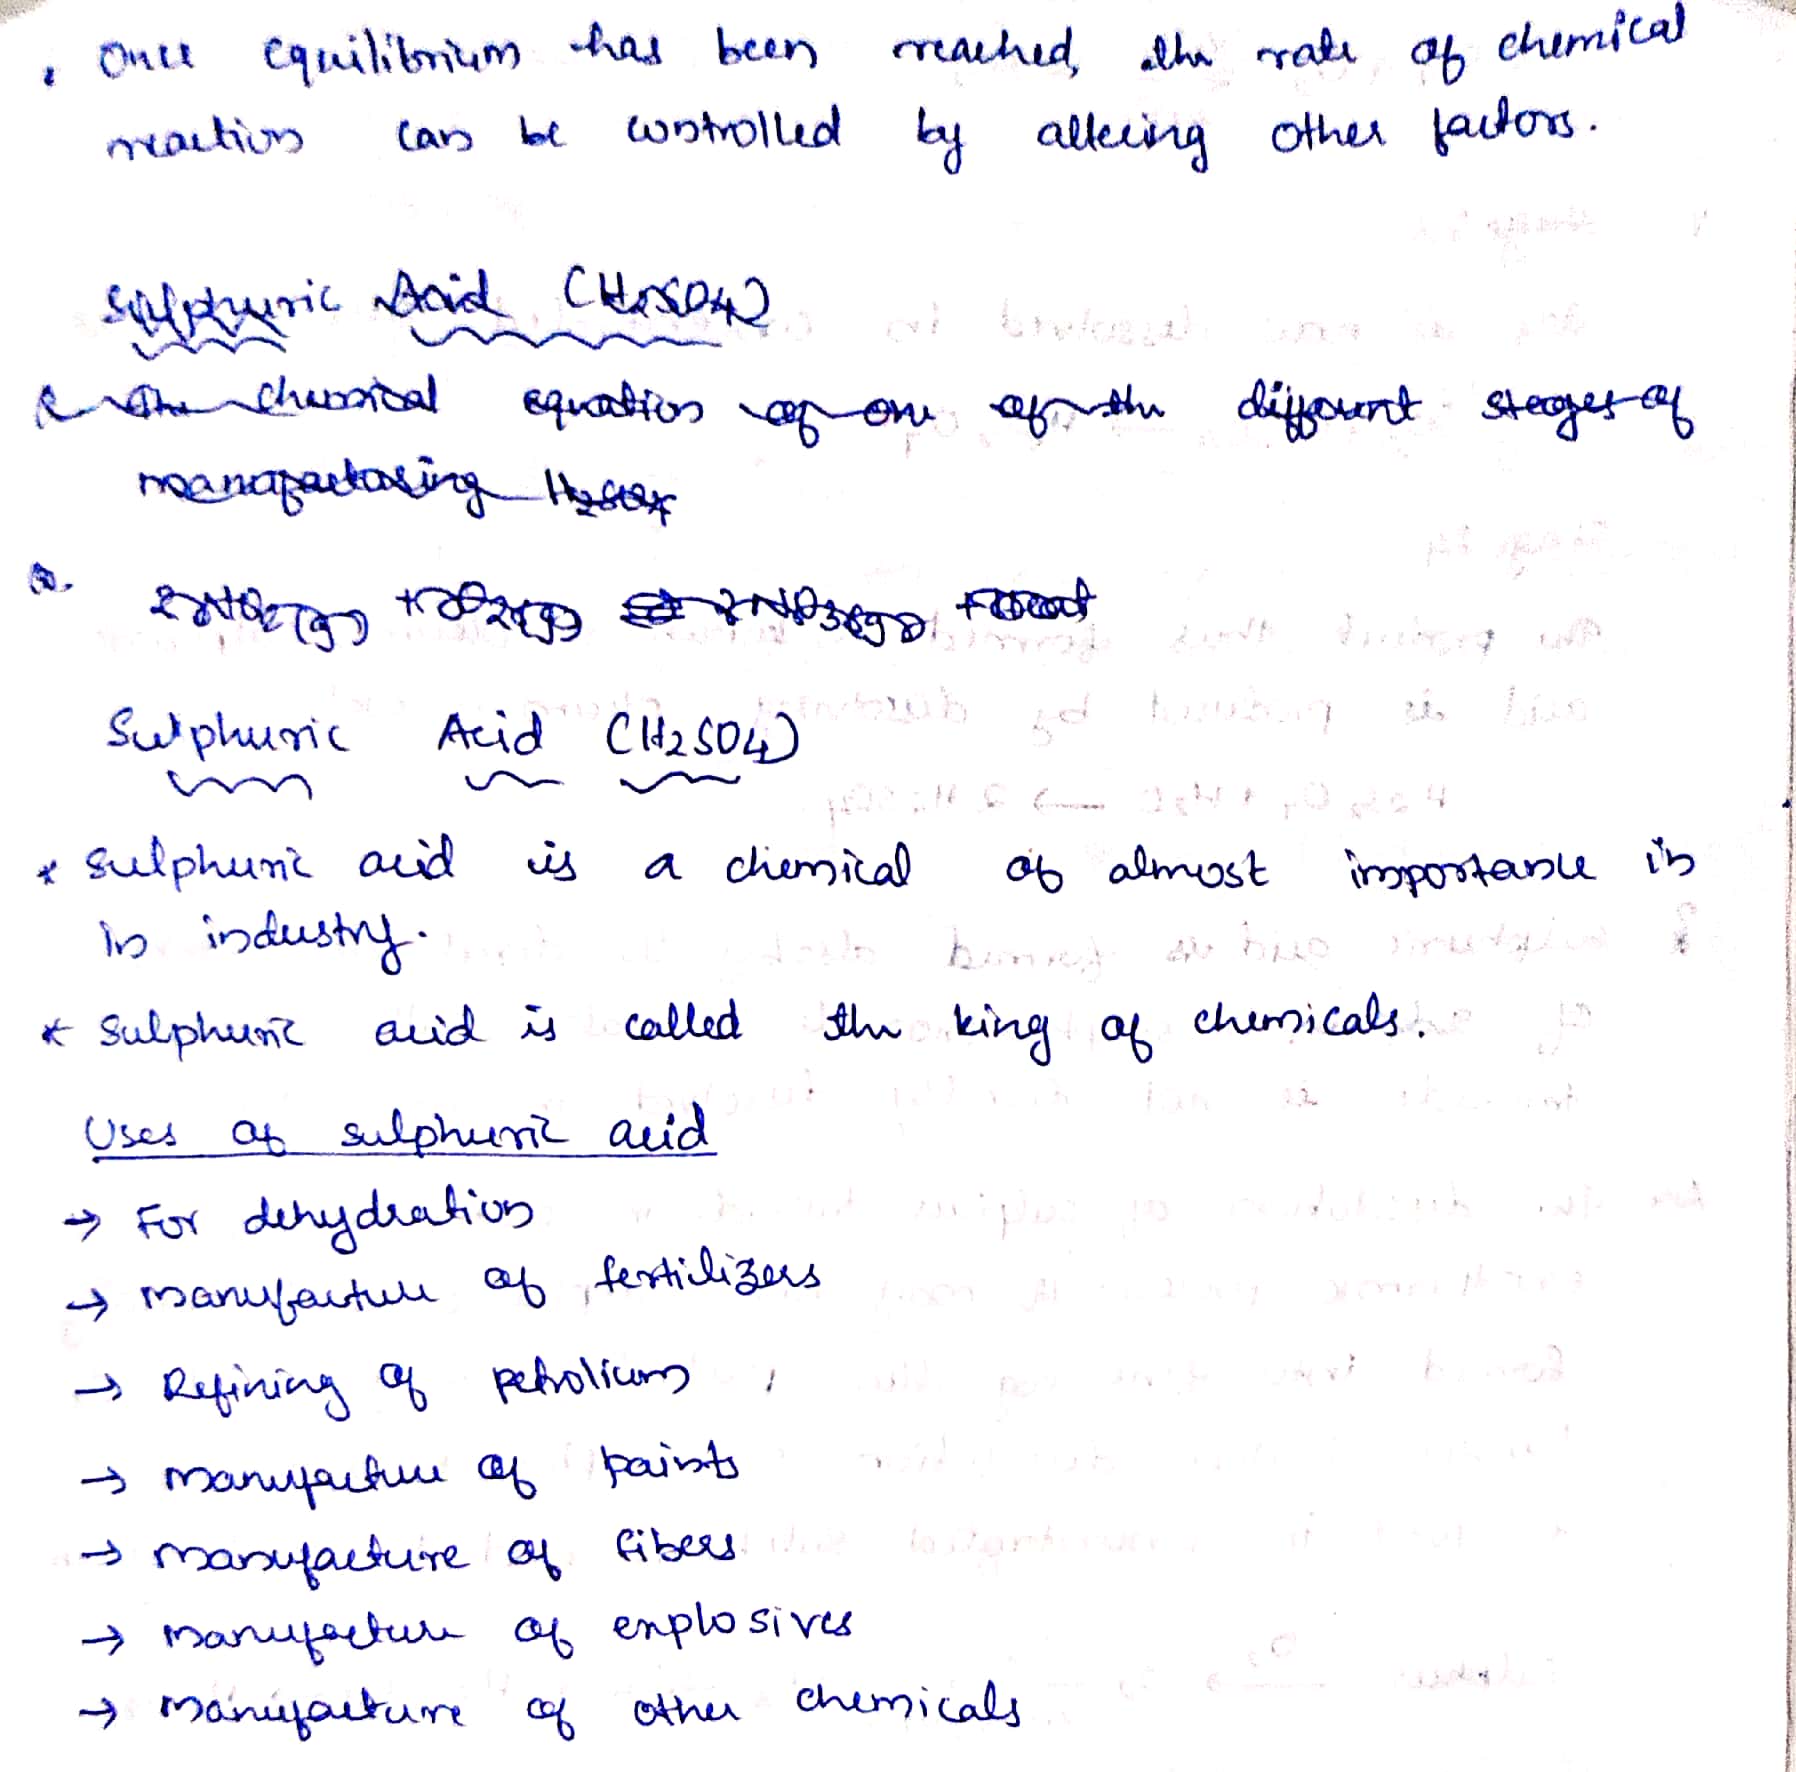 • Once equilibrium has been reached, the rate of chemical
reaction can be controlled by altering other factors.
Sulphuric Acid (H2SO4)
The chemical equation of one of the different stages of
manufacturing H2SO4
Sulphuric Acid (H2SO4)
* Sulphuric acid is a chemical of almost importance in
in industry.
* Sulphuric acid is called the king of chemicals.
Uses of sulphuric acid
→ For dehydration
→ manufacture of fertilizers
→ Refining of petrolium
→ manufacture of paints
→ manufacture of fibers
→ manufacture of explosives
→ manufacture of other chemicals